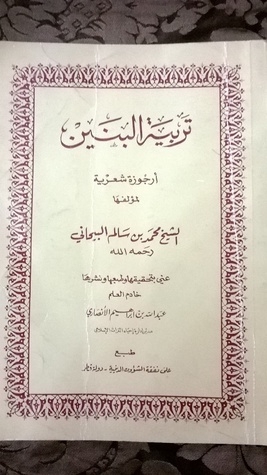 تربية البنين
أرجوزة شعرية
لمؤلفها
الشيخ محمد بن سالم البيحاني
رحمه الله
عنى بتحقيقها وطبعها ونشرها
خادم العلم
عبدالله بن إبراهيم الأنصاري
طبع
على نفقة الشؤون الدينية - دولة قطر